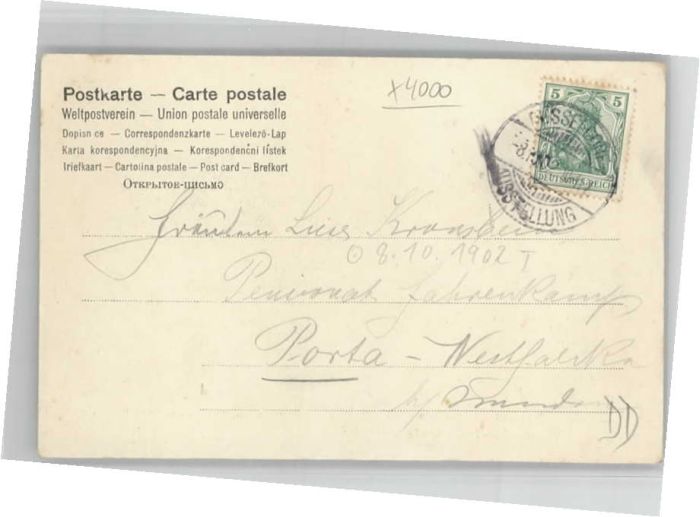 Postkarte — Carte postale
Weltpostverein — Union postale universelle
Dopisnice — Correspondenzkarte — Levelező-Lap
Karta korespondencyjna — Korespondenční lístek
Briefkart — Cartolina postale — Post card — Brefkort
Открытое-письмо
x4000
5 5
DEUTSCHES REICH
AUSSTELLUNG
Fräulein
8.10.1902
Pensionat Fahrenkamp
Porta - Westfalika
b/ Minden
DD